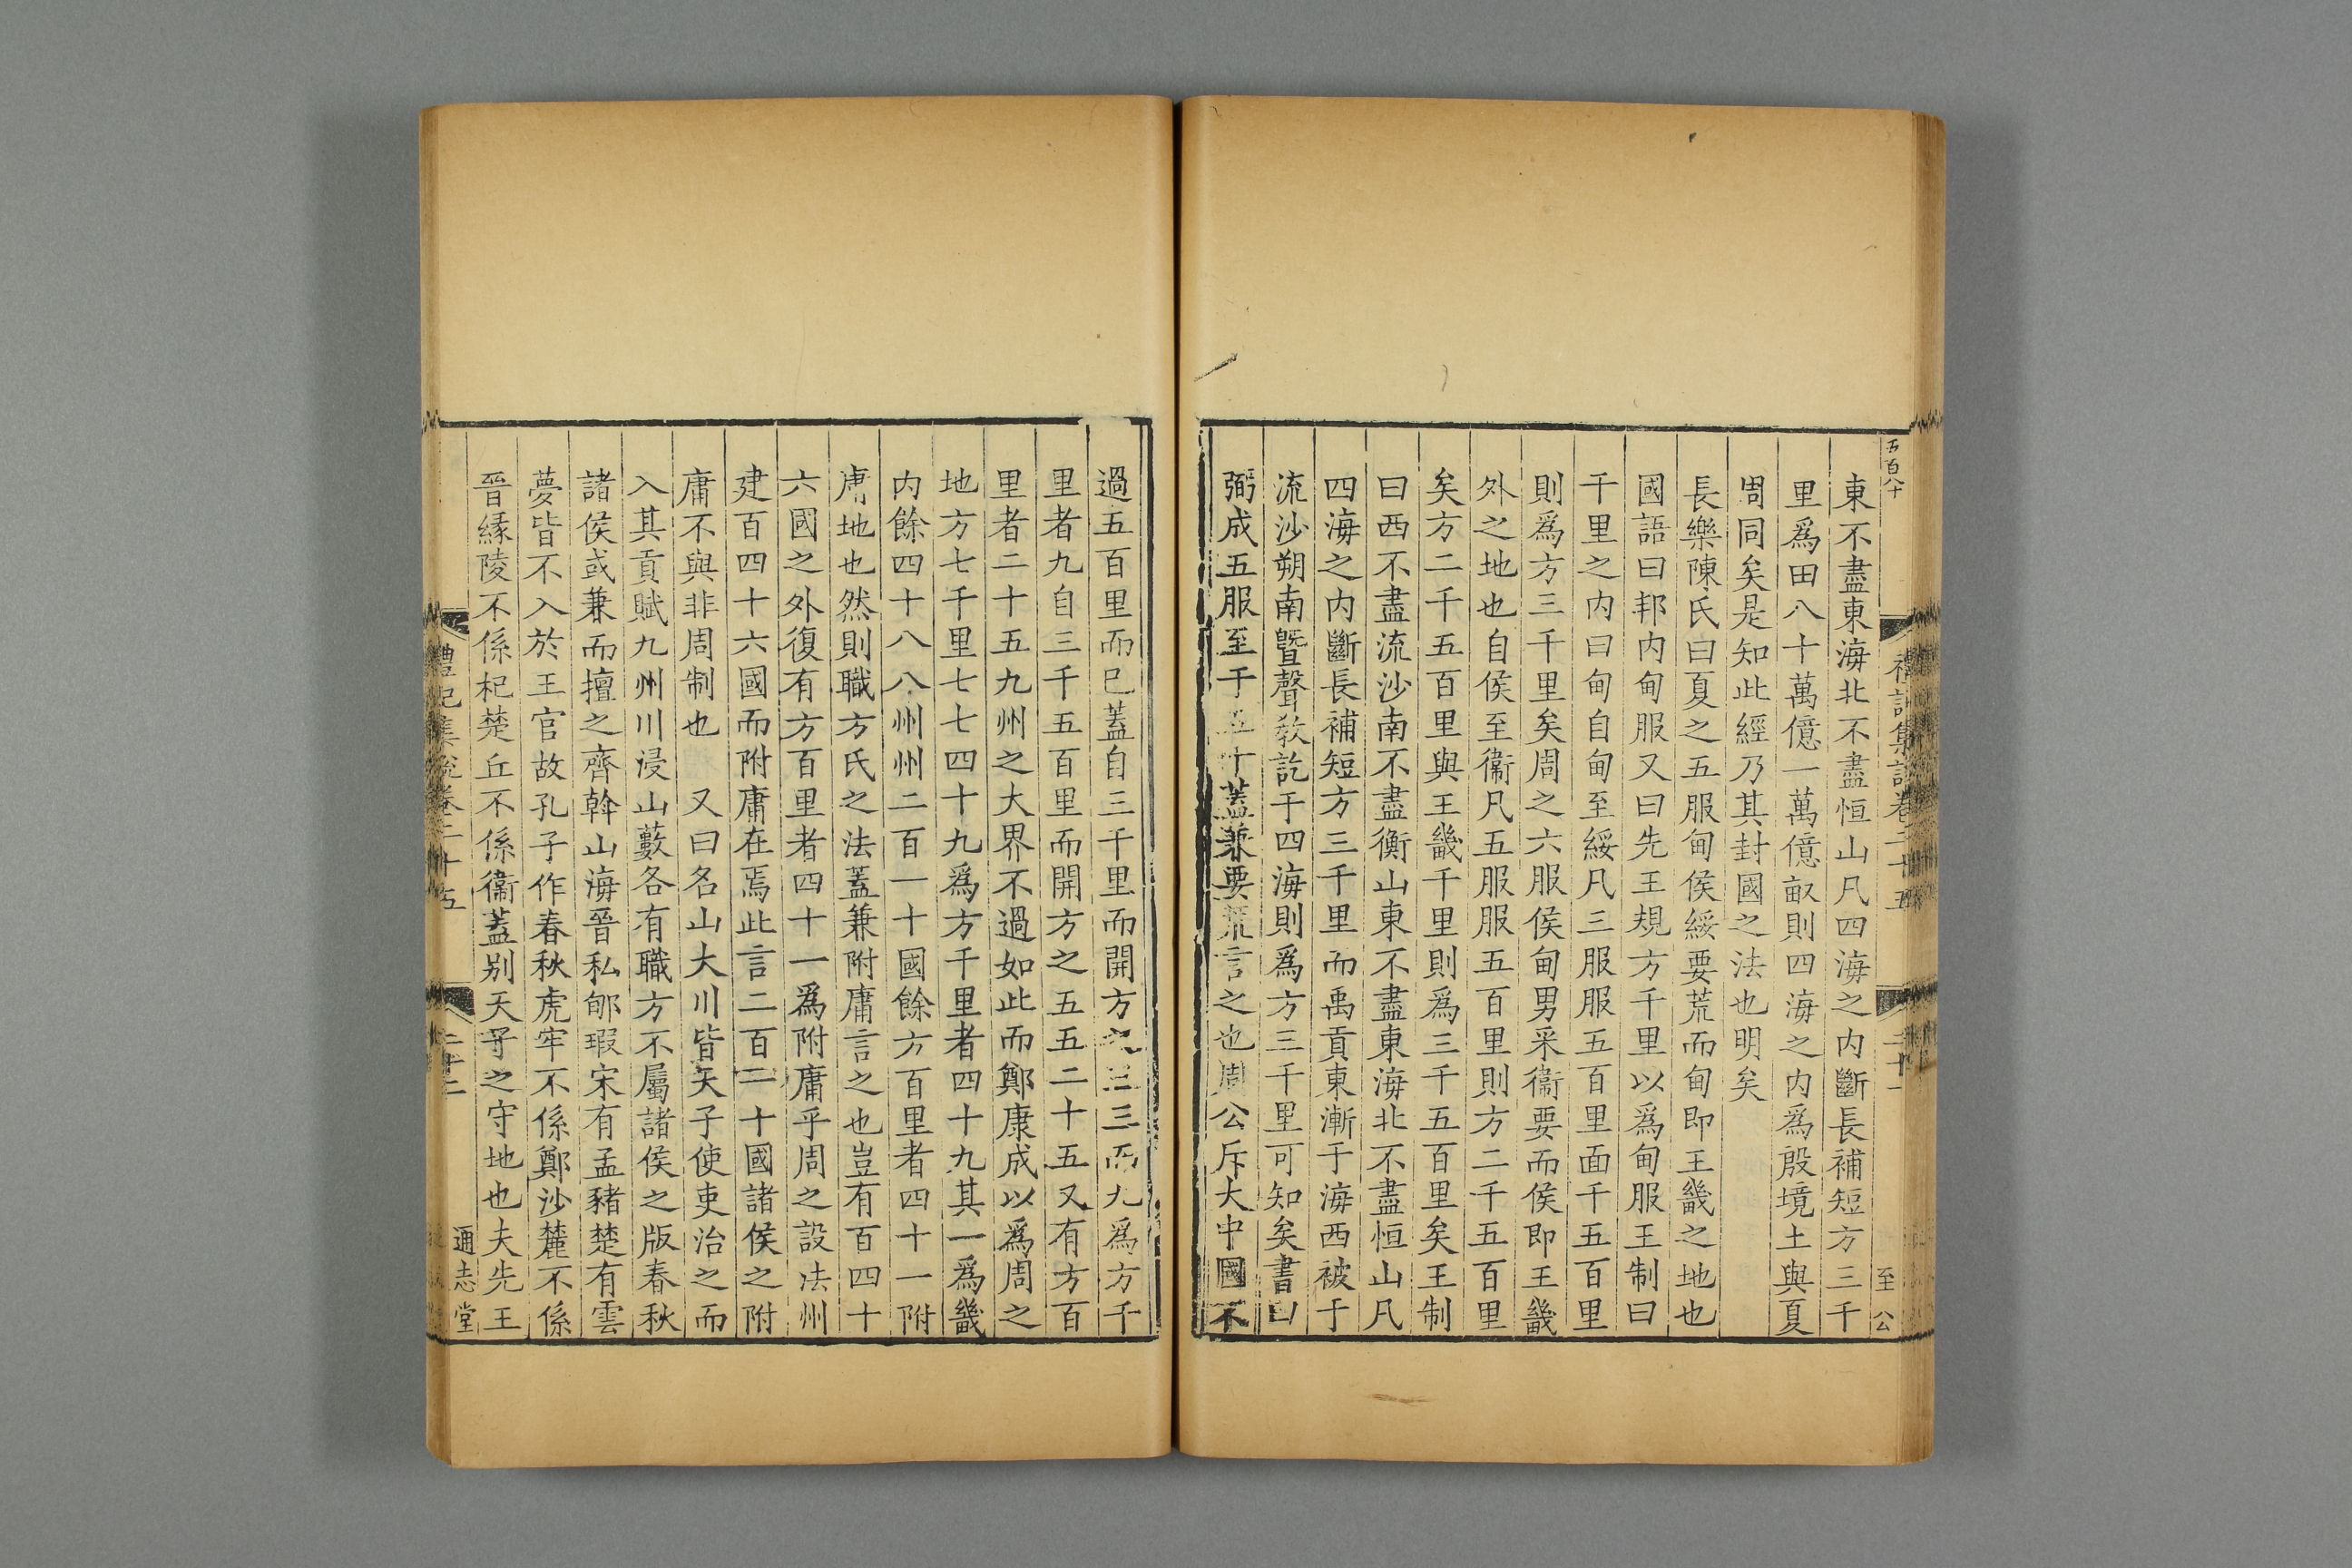 五百八十
禮記集說卷二十五
二十一
至公
東不盡東海北不盡恒山凡四海之内斷長補短方三千
里爲田八十萬億一萬億畝則四海之内爲殷境土與夏
周同矣是知此經乃其封國之法也明矣
長樂陳氏曰夏之五服甸侯綏要荒而甸即王畿之地也
國語曰邦内甸服又曰先王規方千里以爲甸服王制曰
千里之内曰甸自甸至綏凡三服服五百里面千五百里
則爲方三千里矣周之六服侯甸男采衞要而侯即王畿
外之地也自侯至衞凡五服服五百里則方二千五百里
矣方二千五百里與王畿千里則爲三千五百里矣王制
曰西不盡流沙南不盡衡山東不盡東海北不盡恒山凡
四海之内斷長補短方三千里而禹貢東漸于海西被于
流沙朔南曁聲敎訖于四海則爲方三千里可知矣書曰
弼成五服至于五千蓋兼要荒言之也周公斥大中國不
過五百里而已蓋自三千里而開方之三三而九爲方千
里者九自三千五百里而開方之五五二十五又有方百
里者二十五九州之大界不過如此而鄭康成以爲周之
地方七千里七七四十九爲方千里者四十九其一爲畿
内餘四十八八州州二百一十國餘方百里者四十一附
庸地也然則職方氏之法蓋兼附庸言之也豈有百四十
六國之外復有方百里者四十一爲附庸乎周之設法州
建百四十六國而附庸在焉此言二百二十國諸侯之附
庸不與非周制也 又曰名山大川皆天子使吏治之而
入其貢賦九州川浸山藪各有職方不屬諸侯之版春秋
諸侯或兼而擅之齊斡山海晉私郇瑕宋有孟豬楚有雲
夢皆不入於王官故孔子作春秋虎牢不係鄭沙麓不係
晉緣陵不係杞楚丘不係衞蓋别天子之守地也夫先王
禮記集說卷二十五
二十二
通志堂